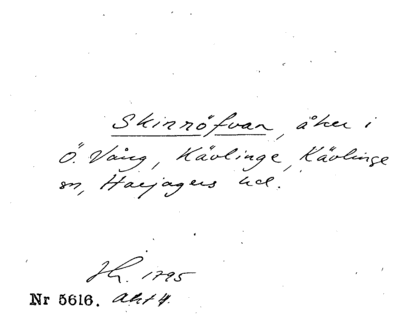 Skinnöfvan, åker i
Ö. Vång, Kävlinge, Kävlinge
sn, Harjagers hd.
Jh. 1795
Nr 5616. akt 4.